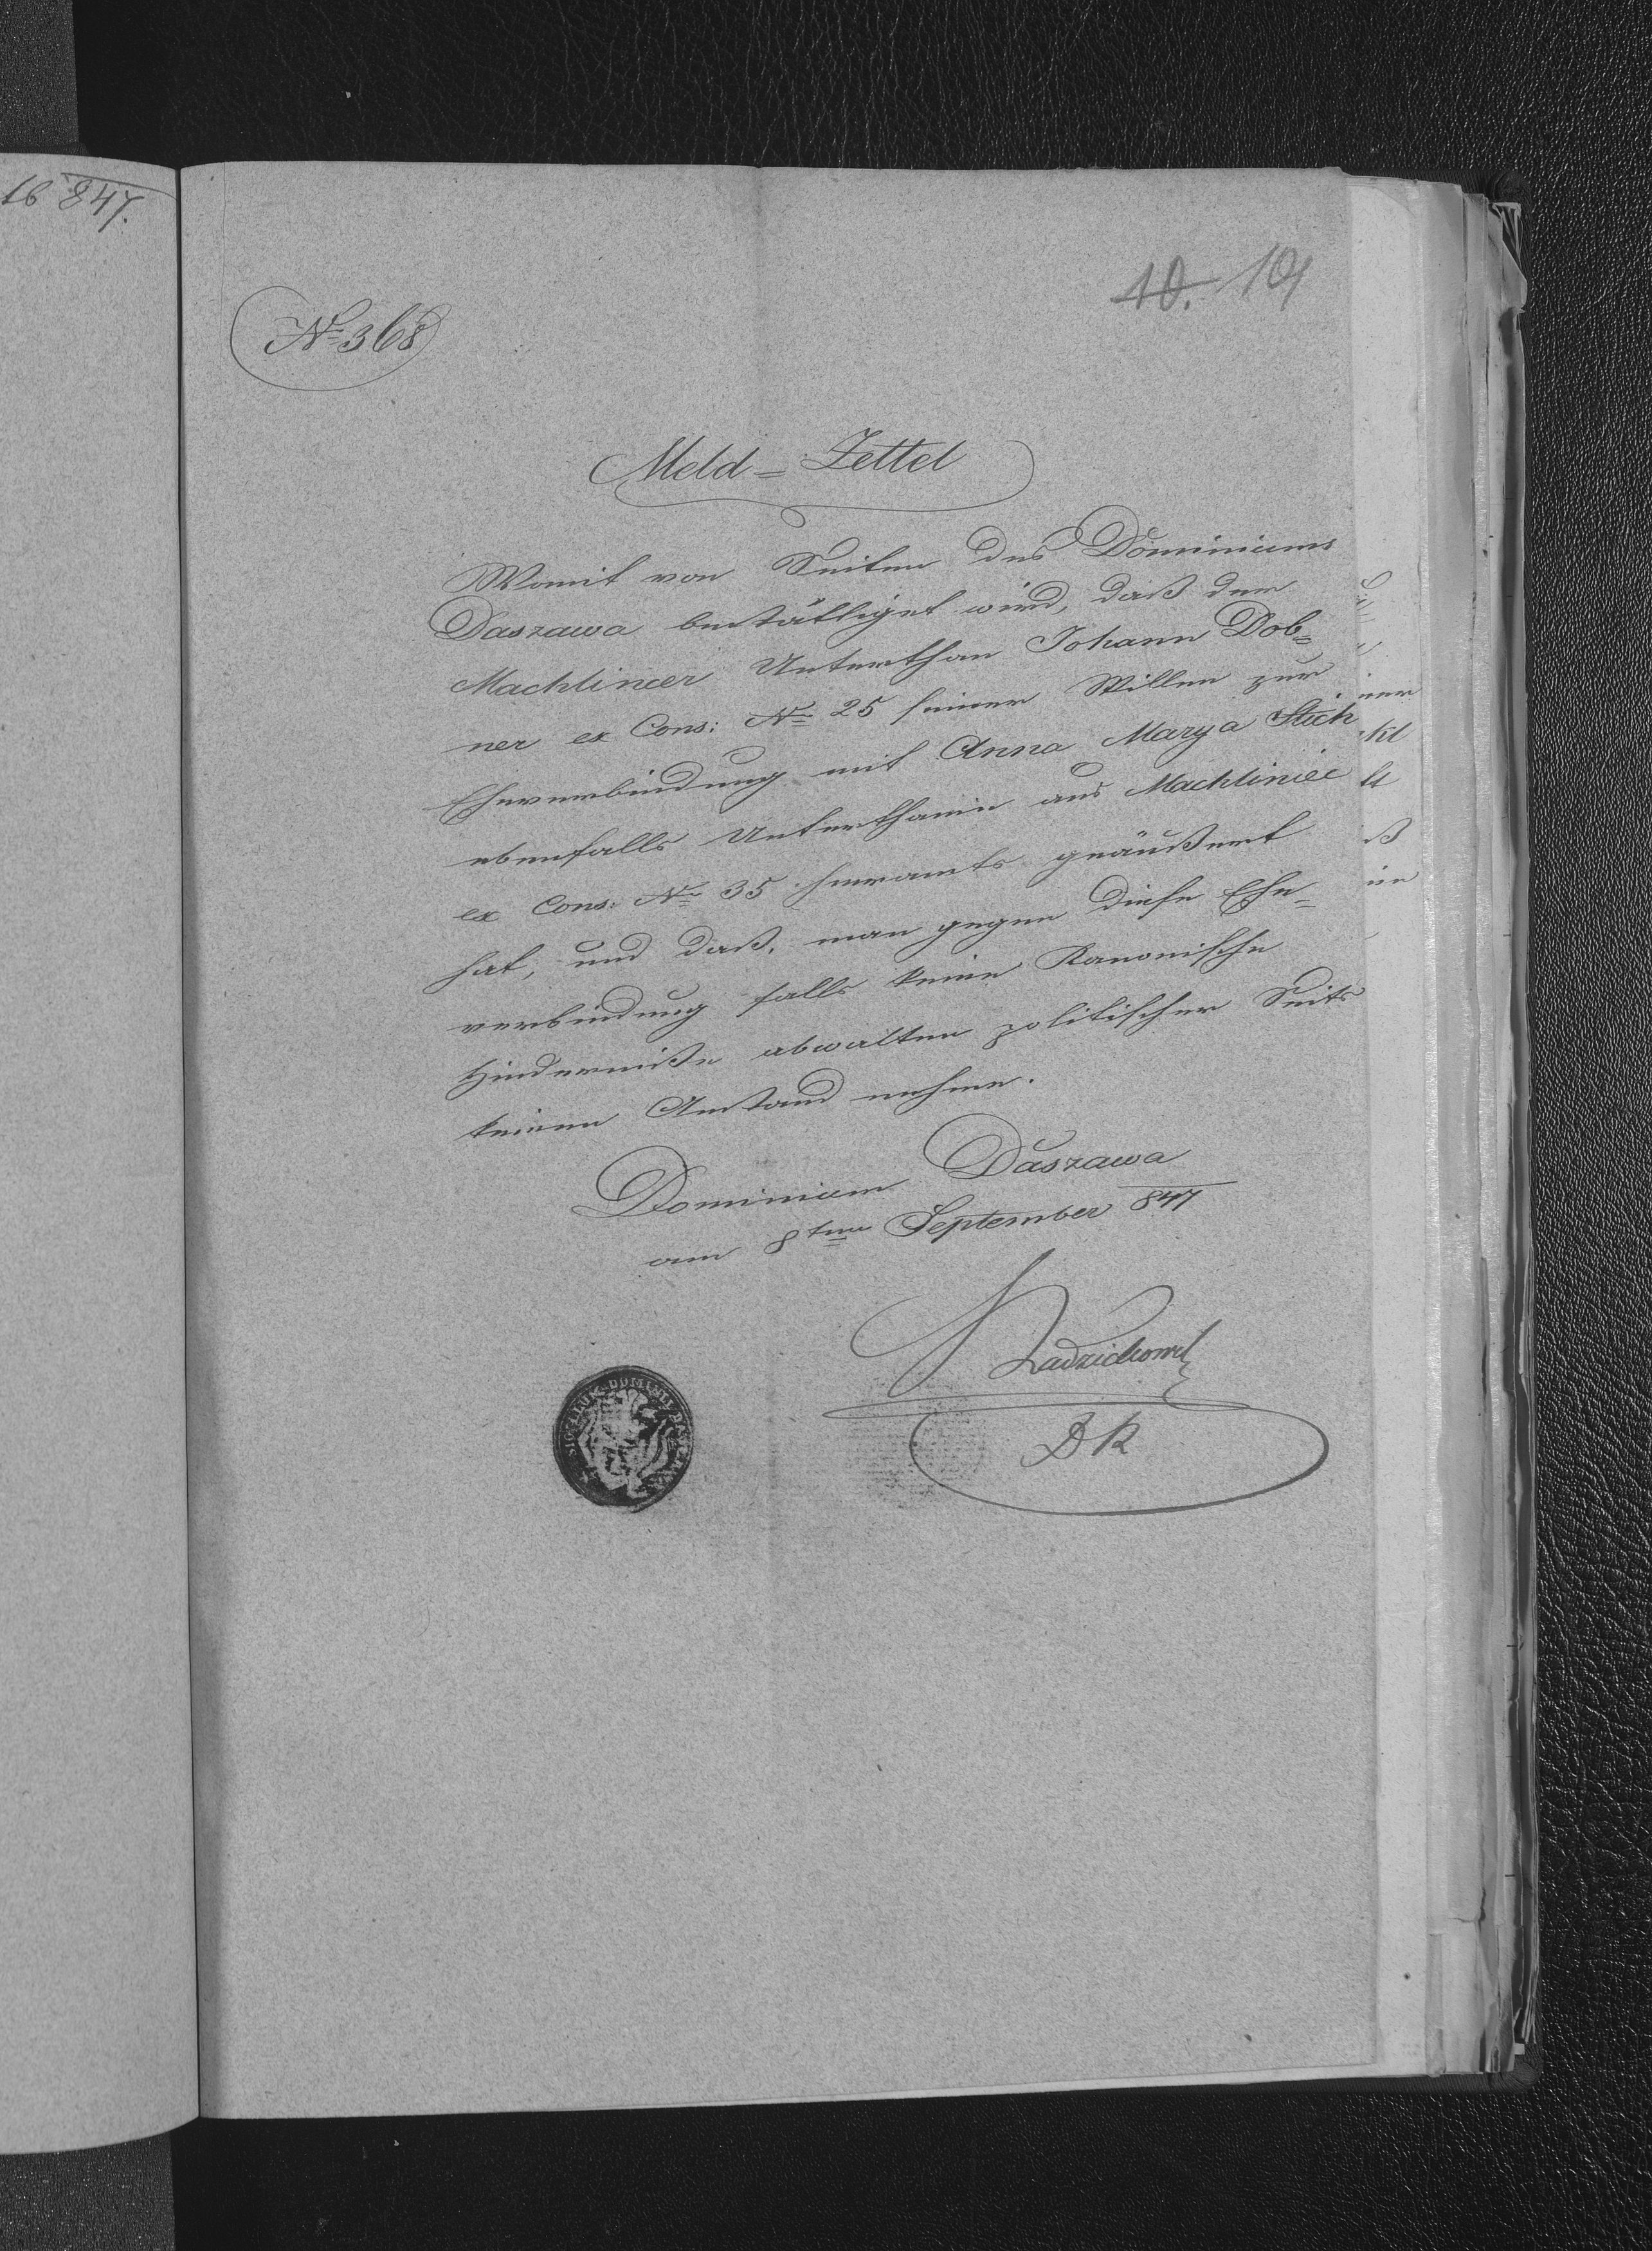 16 847.
10. 101
No 368
Meld=Zettel
Womit von Seiten des Dominiums
Daszawa bestätiget wird, daß der
Machliniecer Unterthan Johann Dob=
ner ex Cons: No 25 seinen Willen zur
Eheverbindung mit Anna Marya Stich
ebenfalls Unterthanin aus Machliniec
ex Cons: No 35 hieramts geäußert
hat, und daß, man gegen diese Ehe=
verbindung falls keine Kanonische
Hinderniße obwalten politischer Seits
keinen Anstand nehme.
Dominium Daszawa
am 8ten September 847
DR